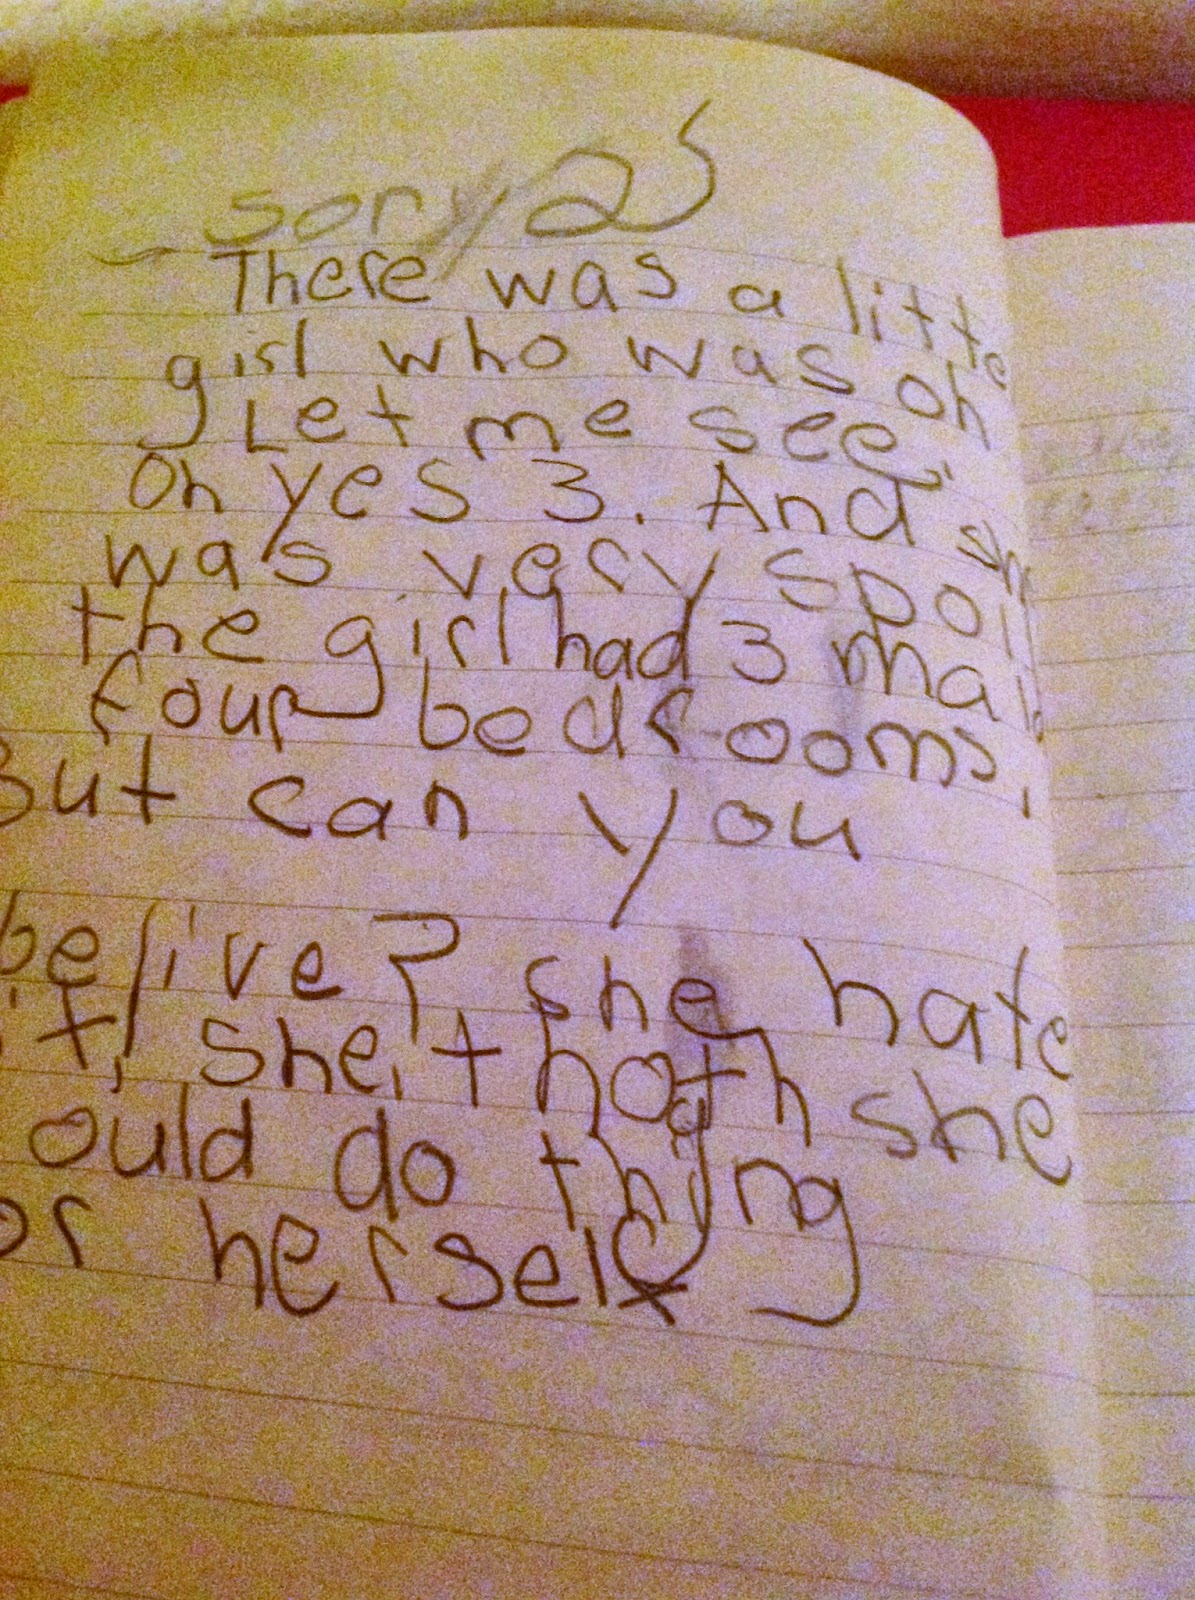 sory 2
There was a litte
girl who was oh
Let me see,
Oh yes 3. And sh
was very spoil
the girl had 3 mai
four bedrooms,
But can you
belive? she hate
it, she, thoth she
ould do thing
or herself